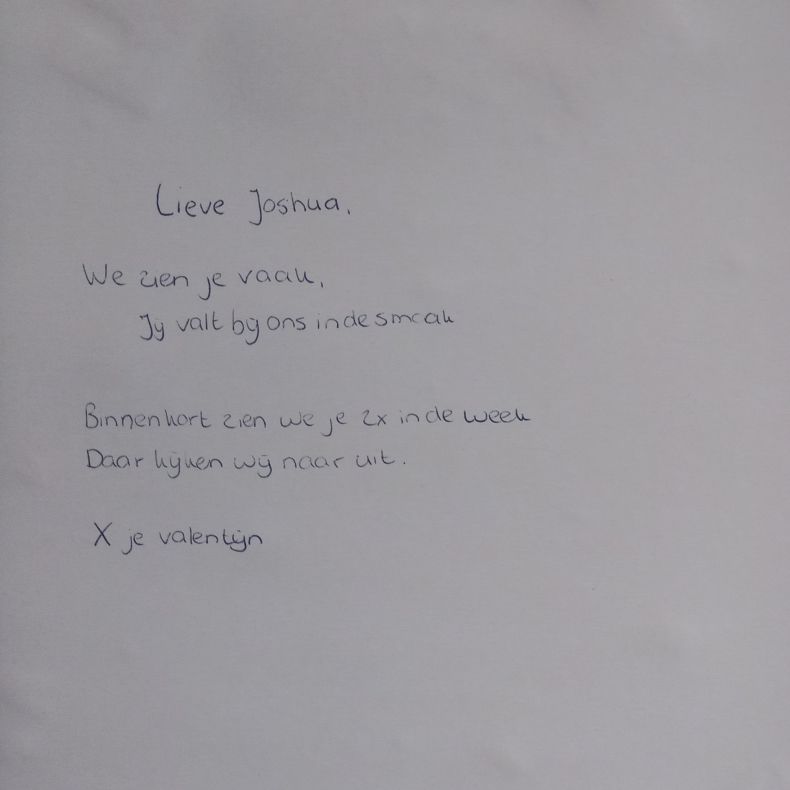 Lieve Joshua,
We zien je vaak,
Jij valt bij ons in de smaak
Binnenkort zien we je 2x in de week
Daar kijken wij naar uit.
X je valentijn